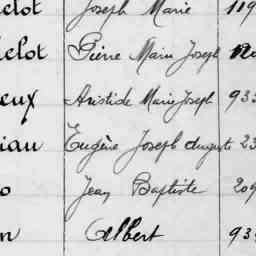 elot Joseph Marie 119
elot Pierre Marie Joseph
eux Aristide Marie Joseph 933
iau Eugène Joseph Auguste 23
o Jean Baptiste 209
n Albert 93